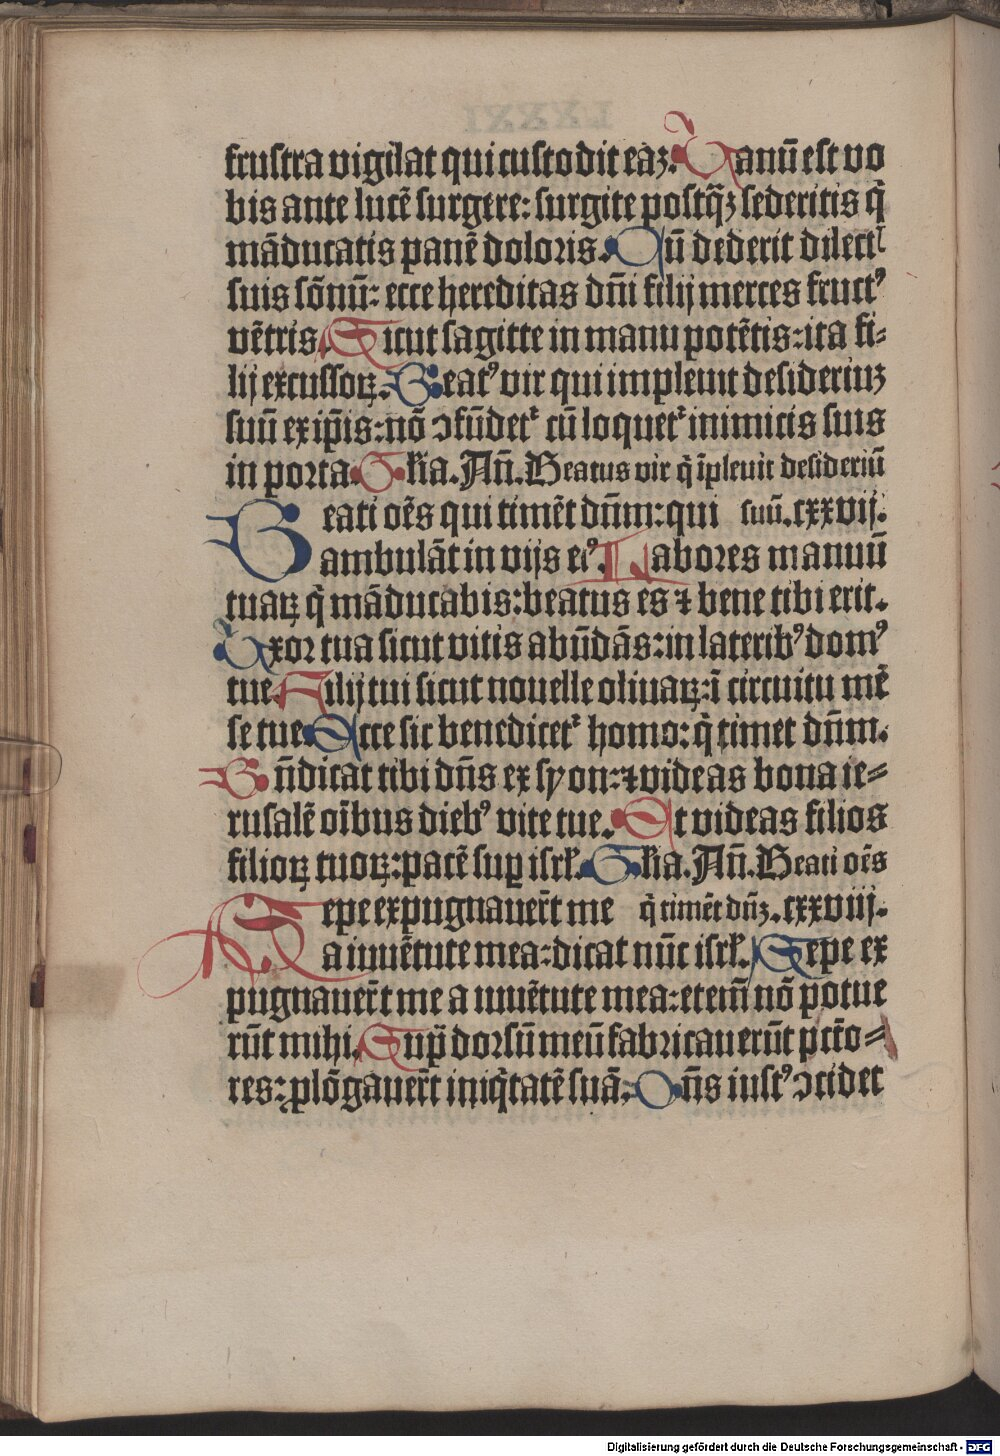 frustra vigilat qui custodit eaꝫ. Uanū est vo
bis ante lucē surgere: surgite postq̄ꝫ sederitis q̄
māducatis panē doloris. Cū dederit dilect
suis sōnū: ecce hereditas dn̄i filij merces fructꝰ
vētris. Sicut sagitte in manu potētis: ita fi⸗
lij excussoꝝ. Beatꝰ vir qui impleuit desideriuꝫ
suū ex ip̄is: nō ↄfūdet᷑ cū loquet᷑ inimicis suis
in porta. Gl̄ia. An̄. Beatus vir q̄ īpleuit desideriū
Beati oēs qui timēt dn̄m: qui suū. cxxvij.
ambulāt in vijs eiꝰ. Labores manuū
tuaꝝ q̄ māducabis: beatus es ⁊ bene tibi erit.
Uxor tua sicut vitis abūdās: in lateribꝰ domꝰ
tue. Filij tui sicut nouelle oliuaꝝ: ī circuitu mē
se tue. Ecce sic benedicet᷑ homo: q̄ timet dn̄m.
Bn̄dicat tibi dn̄s ex syon: ⁊ videas bona ie⸗
rusalē oībus diebꝰ vite tue. Et videas filios
filioꝝ tuoꝝ: pacē suꝑ isrl̄. Gl̄ia. An̄. Beati oēs
Sepe expugnauer̄t me q̄ timēt dn̄ꝫ. cxxviij.
a iuuētute mea: dicat nūc isrl̄. Sepe ex
pugnauer̄t me a iuuētute mea: etem̄ nō potue
rūt mihi. Sup̄ dorsū meū fabricauerūt pctō⸗
res: ꝓlōgauer̄t iniq̄tatē suā. Dn̄s iustꝰ ↄcidet
Digitalisierung gefördert durch die Deutsche Forschungsgemeinschaft - DFG